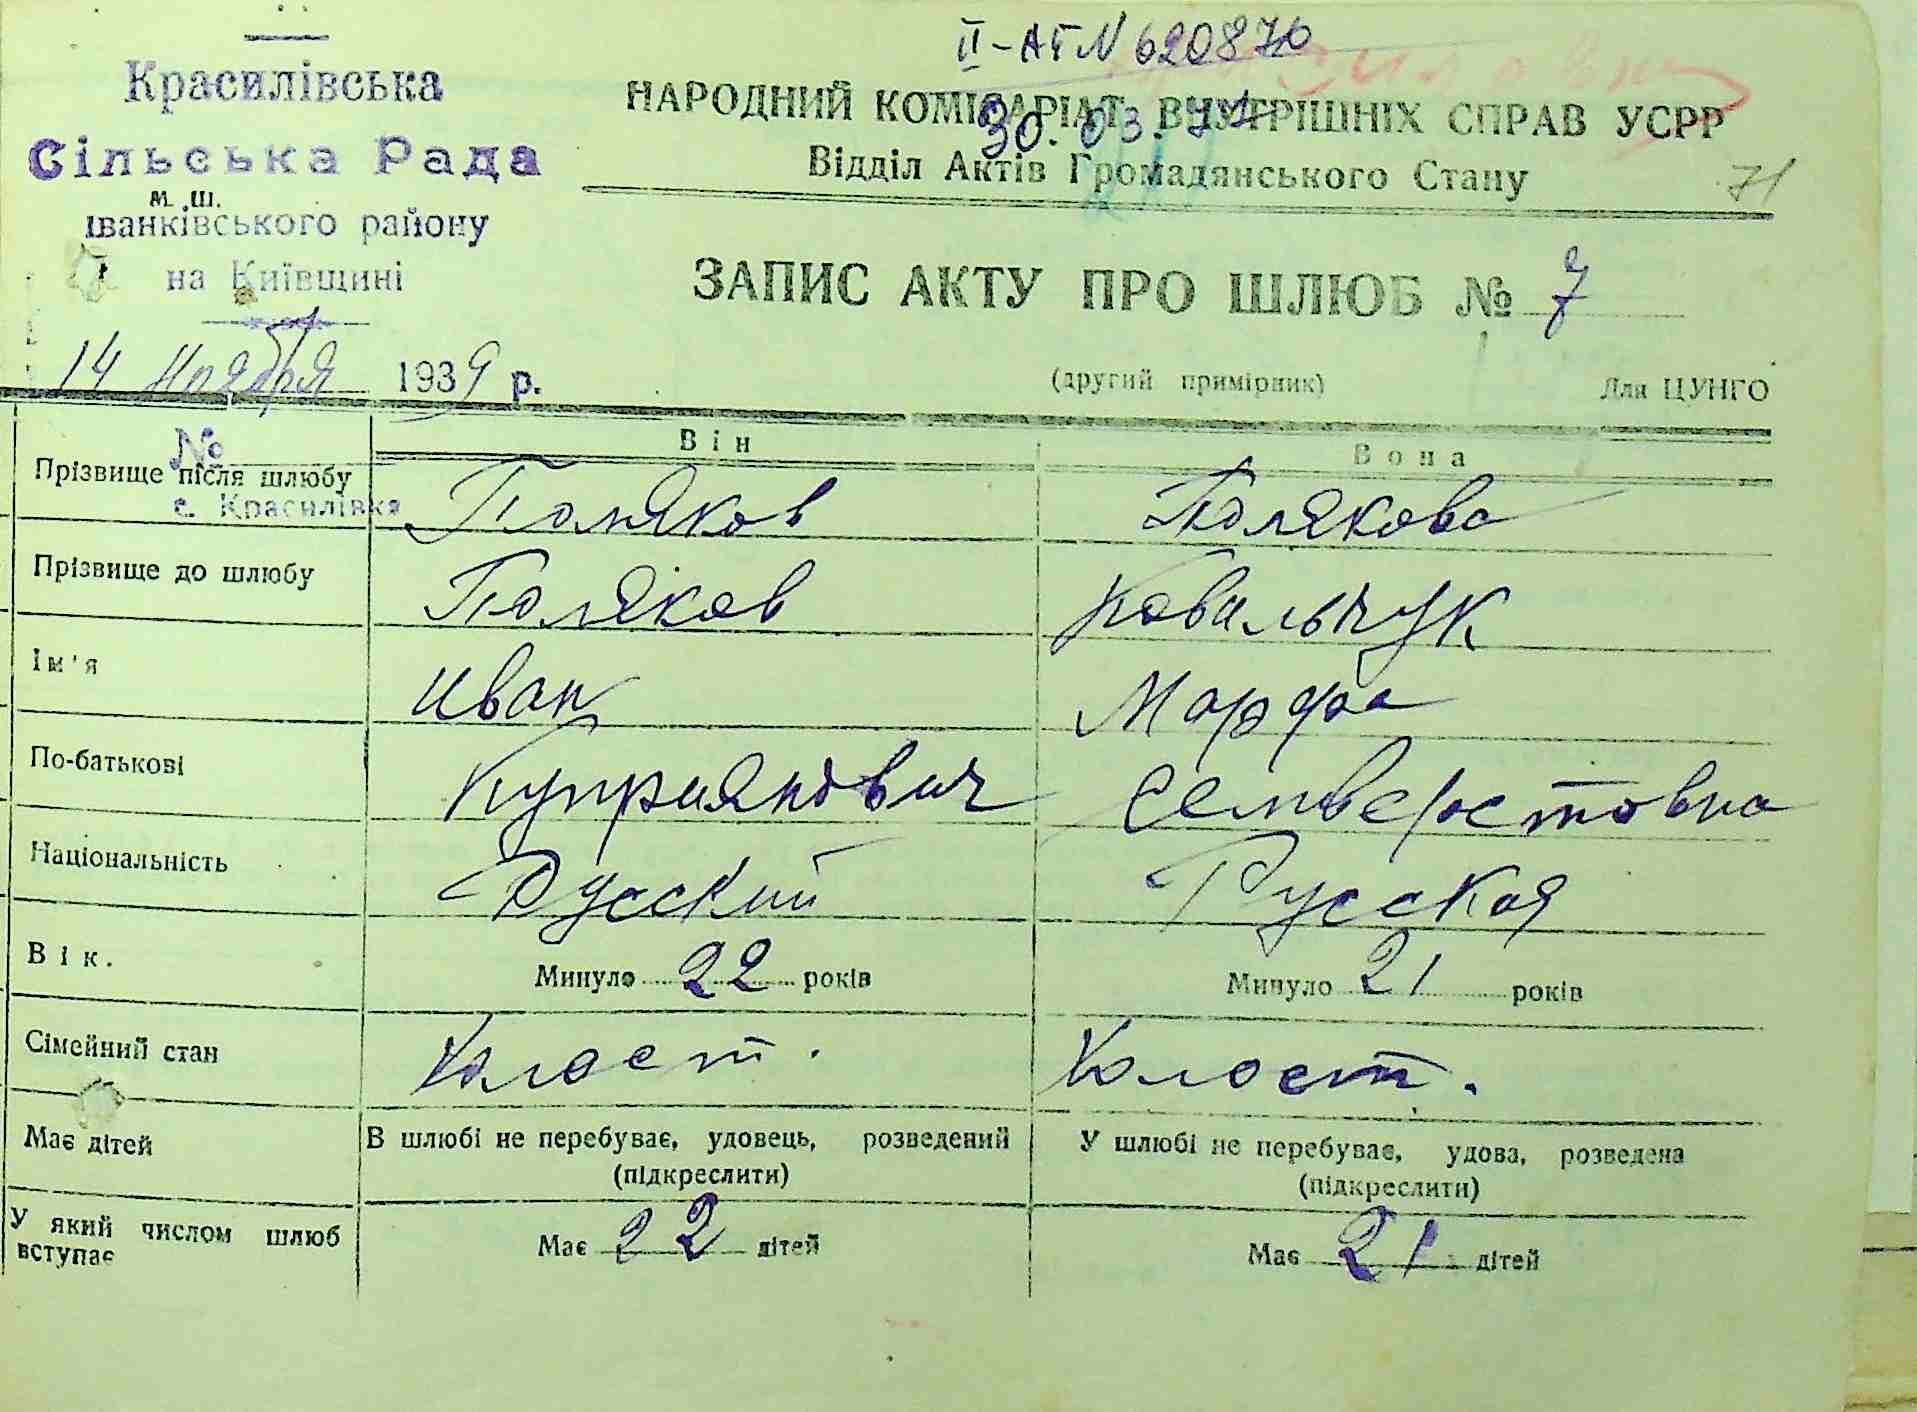 II-АТ N 620876
Красилівська
Сільська Рада
м. ш.
Іванківського району
на Київщині
НАРОДНИЙ КОМІСАРІАТ ВНУТРІШНІХ СПРАВ УСРР
30.03.
Відділ Актів Громадянського Стану
71
ЗАПИС АКТУ ПРО ШЛЮБ № 7
14 Ноября 1939 р.
(другий примірник)
Для ЦУНГО
№
с. Красилівка
Він
Вона
Прізвище після шлюбу Поляков Полякова
Прізвище до шлюбу Поляков Ковальчук
Ім'я Иван Марфа
По-батькові Куприянович
Національність Русский Русская
Вік. Минуло 22 років Минуло 21 років
Сімейний стан Холост. Холост.
Має дітей В шлюбі не перебуває, удовець, розведений У шлюбі не перебуває, удова, розведена
(підкреслити) (підкреслити)
У який числом шлюб Має 22 дітей Має 21 дітей
вступає